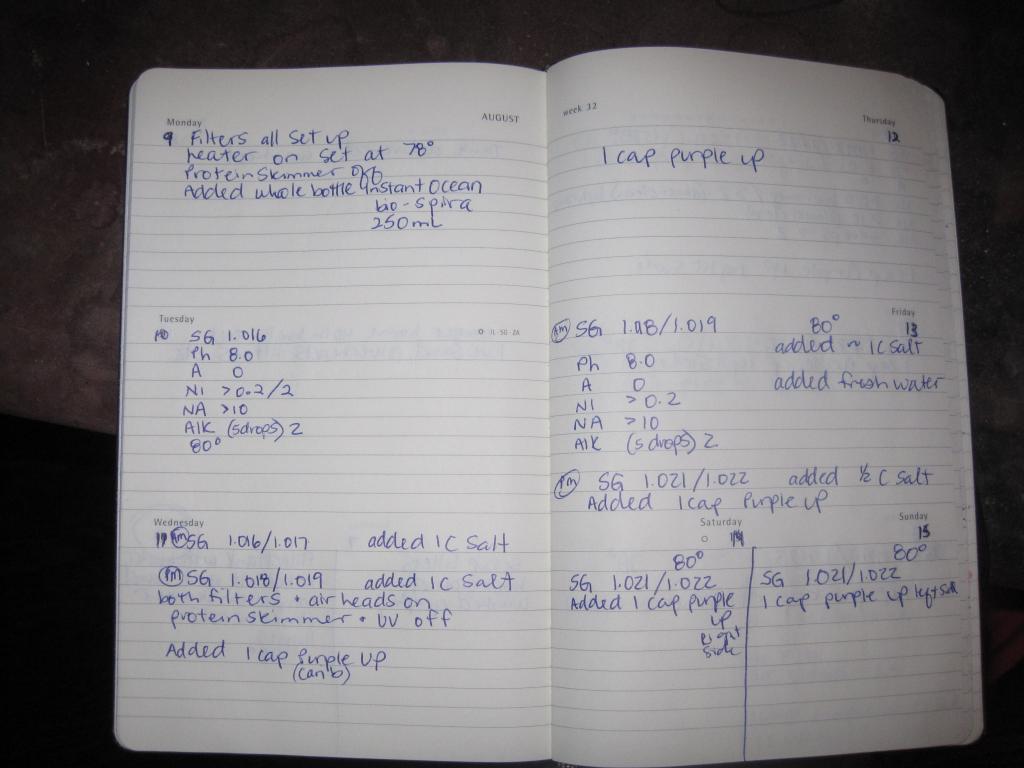 Monday
AUGUST
9 Filters all set up
heater on set at 78°
Protein skimmer off
Added whole bottle instant Ocean
bio-spira
250mL
Tuesday
10 SG 1.016
Ph 8.0
A 0
NI >0.2/2
NA >10
AlK (5drops) 2
80°
Wednesday
11 Am SG 1.016/1.017 added 1C Salt
Pm SG 1.018/1.019 added 1C Salt
both filters + air heads on
protein skimmer + UV off
Added 1 cap Purple Up
(canb)
week 32
Thursday
12
1 cap purple up
Friday
13
Am SG 1.018/1.019 80°
added ~ 1C Salt
Ph 8.0
A 0 added fresh water
NI > 0.2
NA > 10
AlK (5 drops) 2
Pm SG 1.021/1.022 added 1/2 C Salt
Added 1 cap Purple up
Saturday
14
80°
SG 1.021/1.022
Added 1 cap purple
up
Right
side
Sunday
15
80°
SG 1.021/1.022
1 cap purple up left side